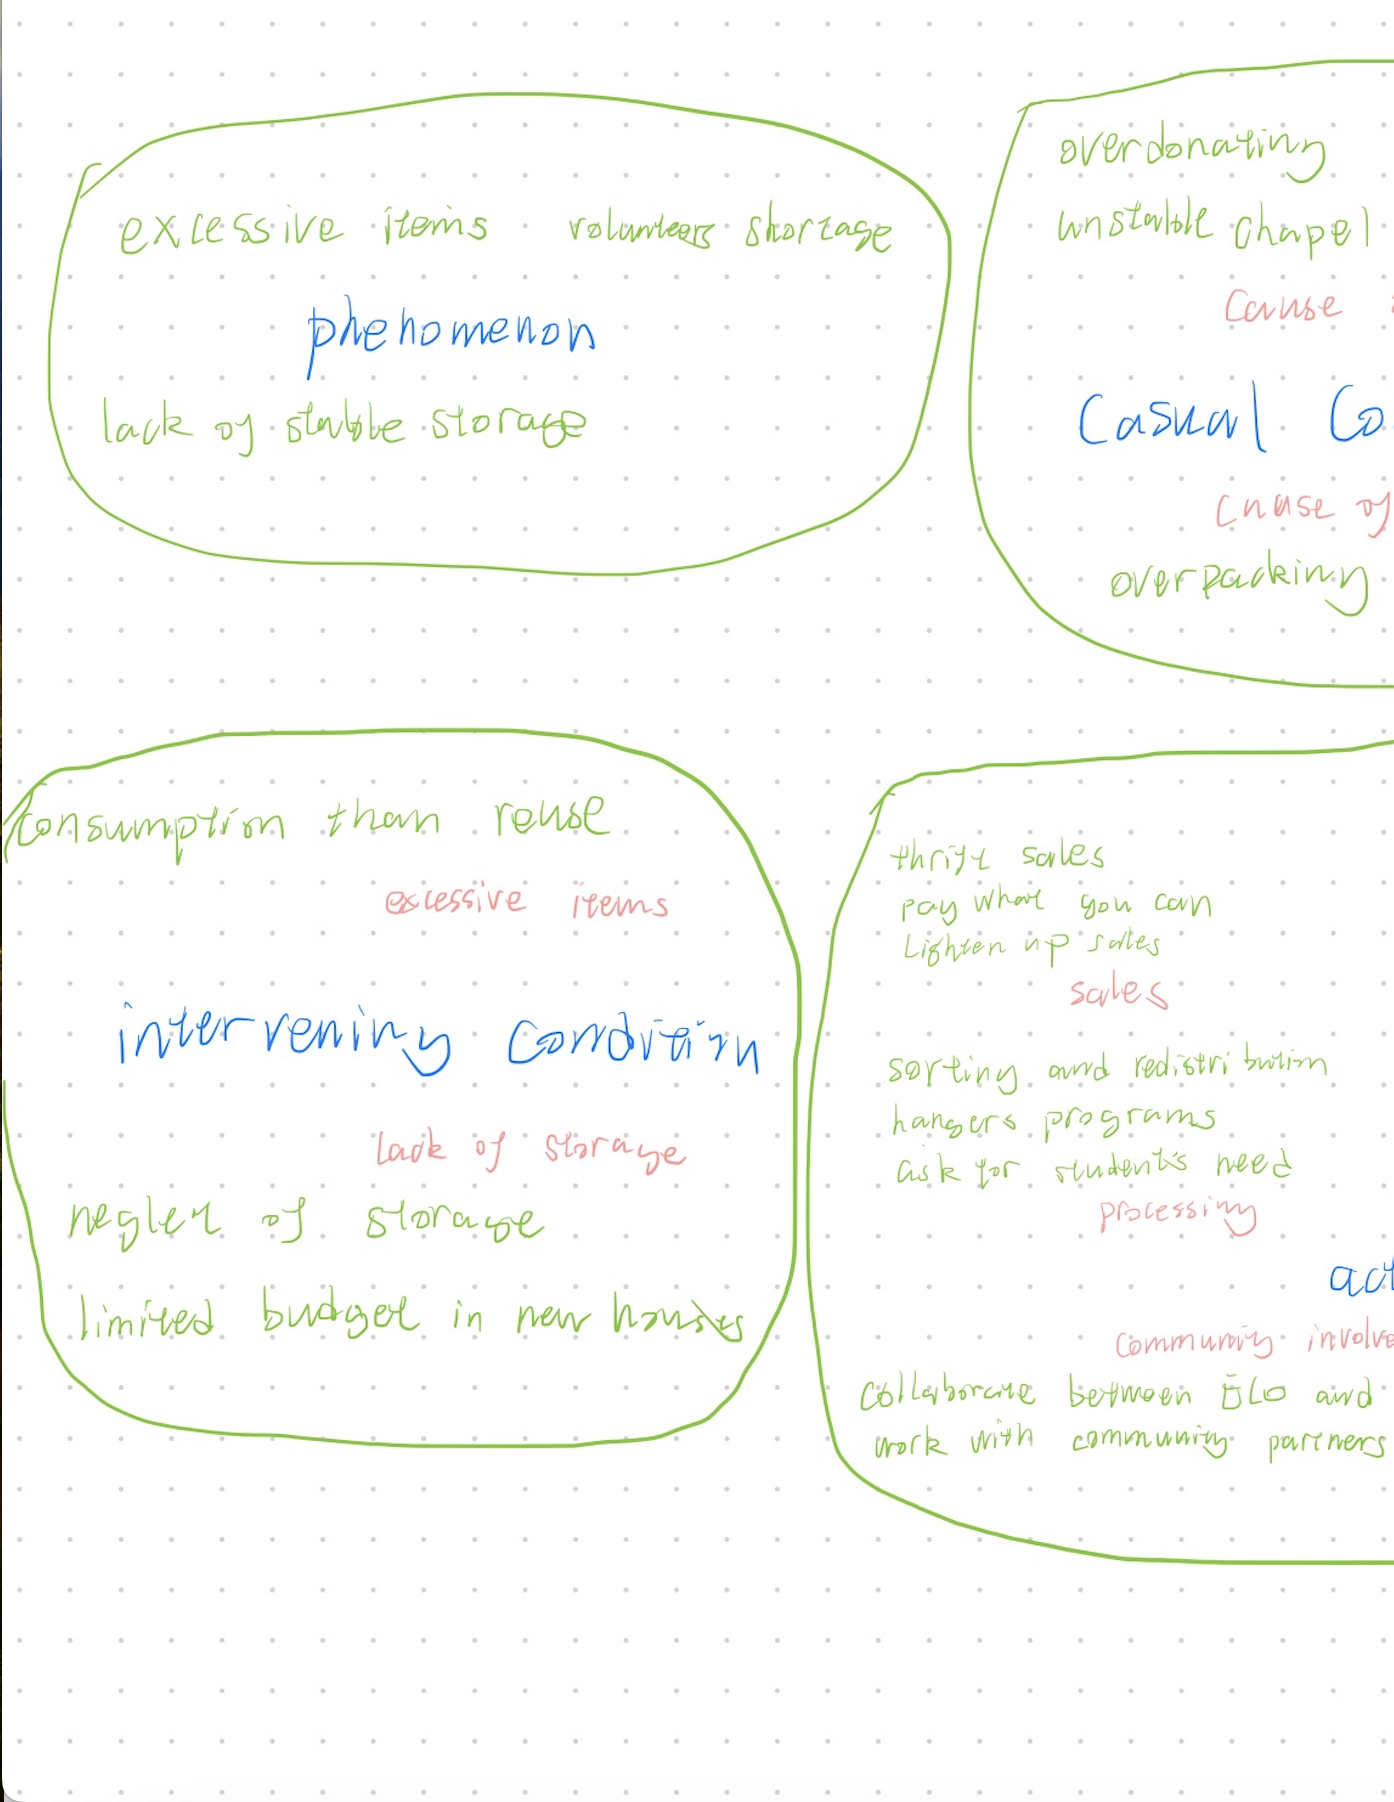 excessive items volunteers shortage
phenomenon
lack of stable storage
overdonating
unstable chapel
cause
Casual Co
cause of
overpacking
consumption than reuse
excessive items
intervening condition
lack of storage
neglect of storage
limited budget in new houses
thrift sales
pay what you can
Lighten up sales
sales
sorting and redistribution
hangers programs
ask for student's need
processing
act
community involve
collaborate between and
work with community partners